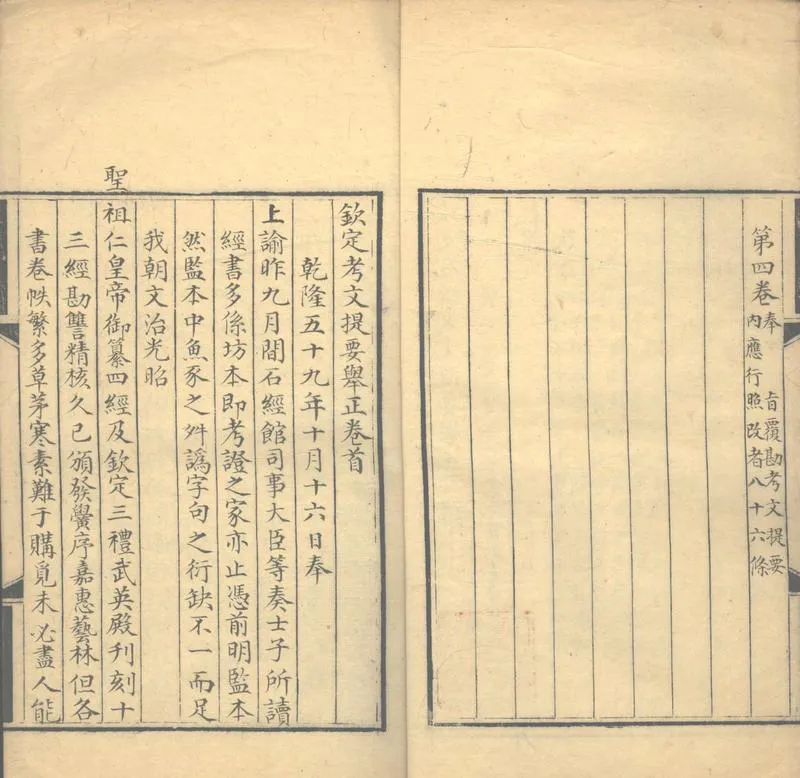 第四卷奉 旨覆勘考文提要
內應行照改者八十六條
欽定考文提要舉正卷首
乾隆五十九年十月十六日奉
上諭昨九月間石經館司事大臣等奏士子所讀
經書多係坊本即考證之家亦止憑前明監本
然監本中魚豕之舛譌字句之衍缺不一而足
我朝文治光昭
聖祖仁皇帝御纂四經及欽定三禮武英殿刊刻十
三經勘讐精核久已頒發黌序嘉惠藝林但各
書卷帙繁多草茅寒素難于購覓未必盡人能